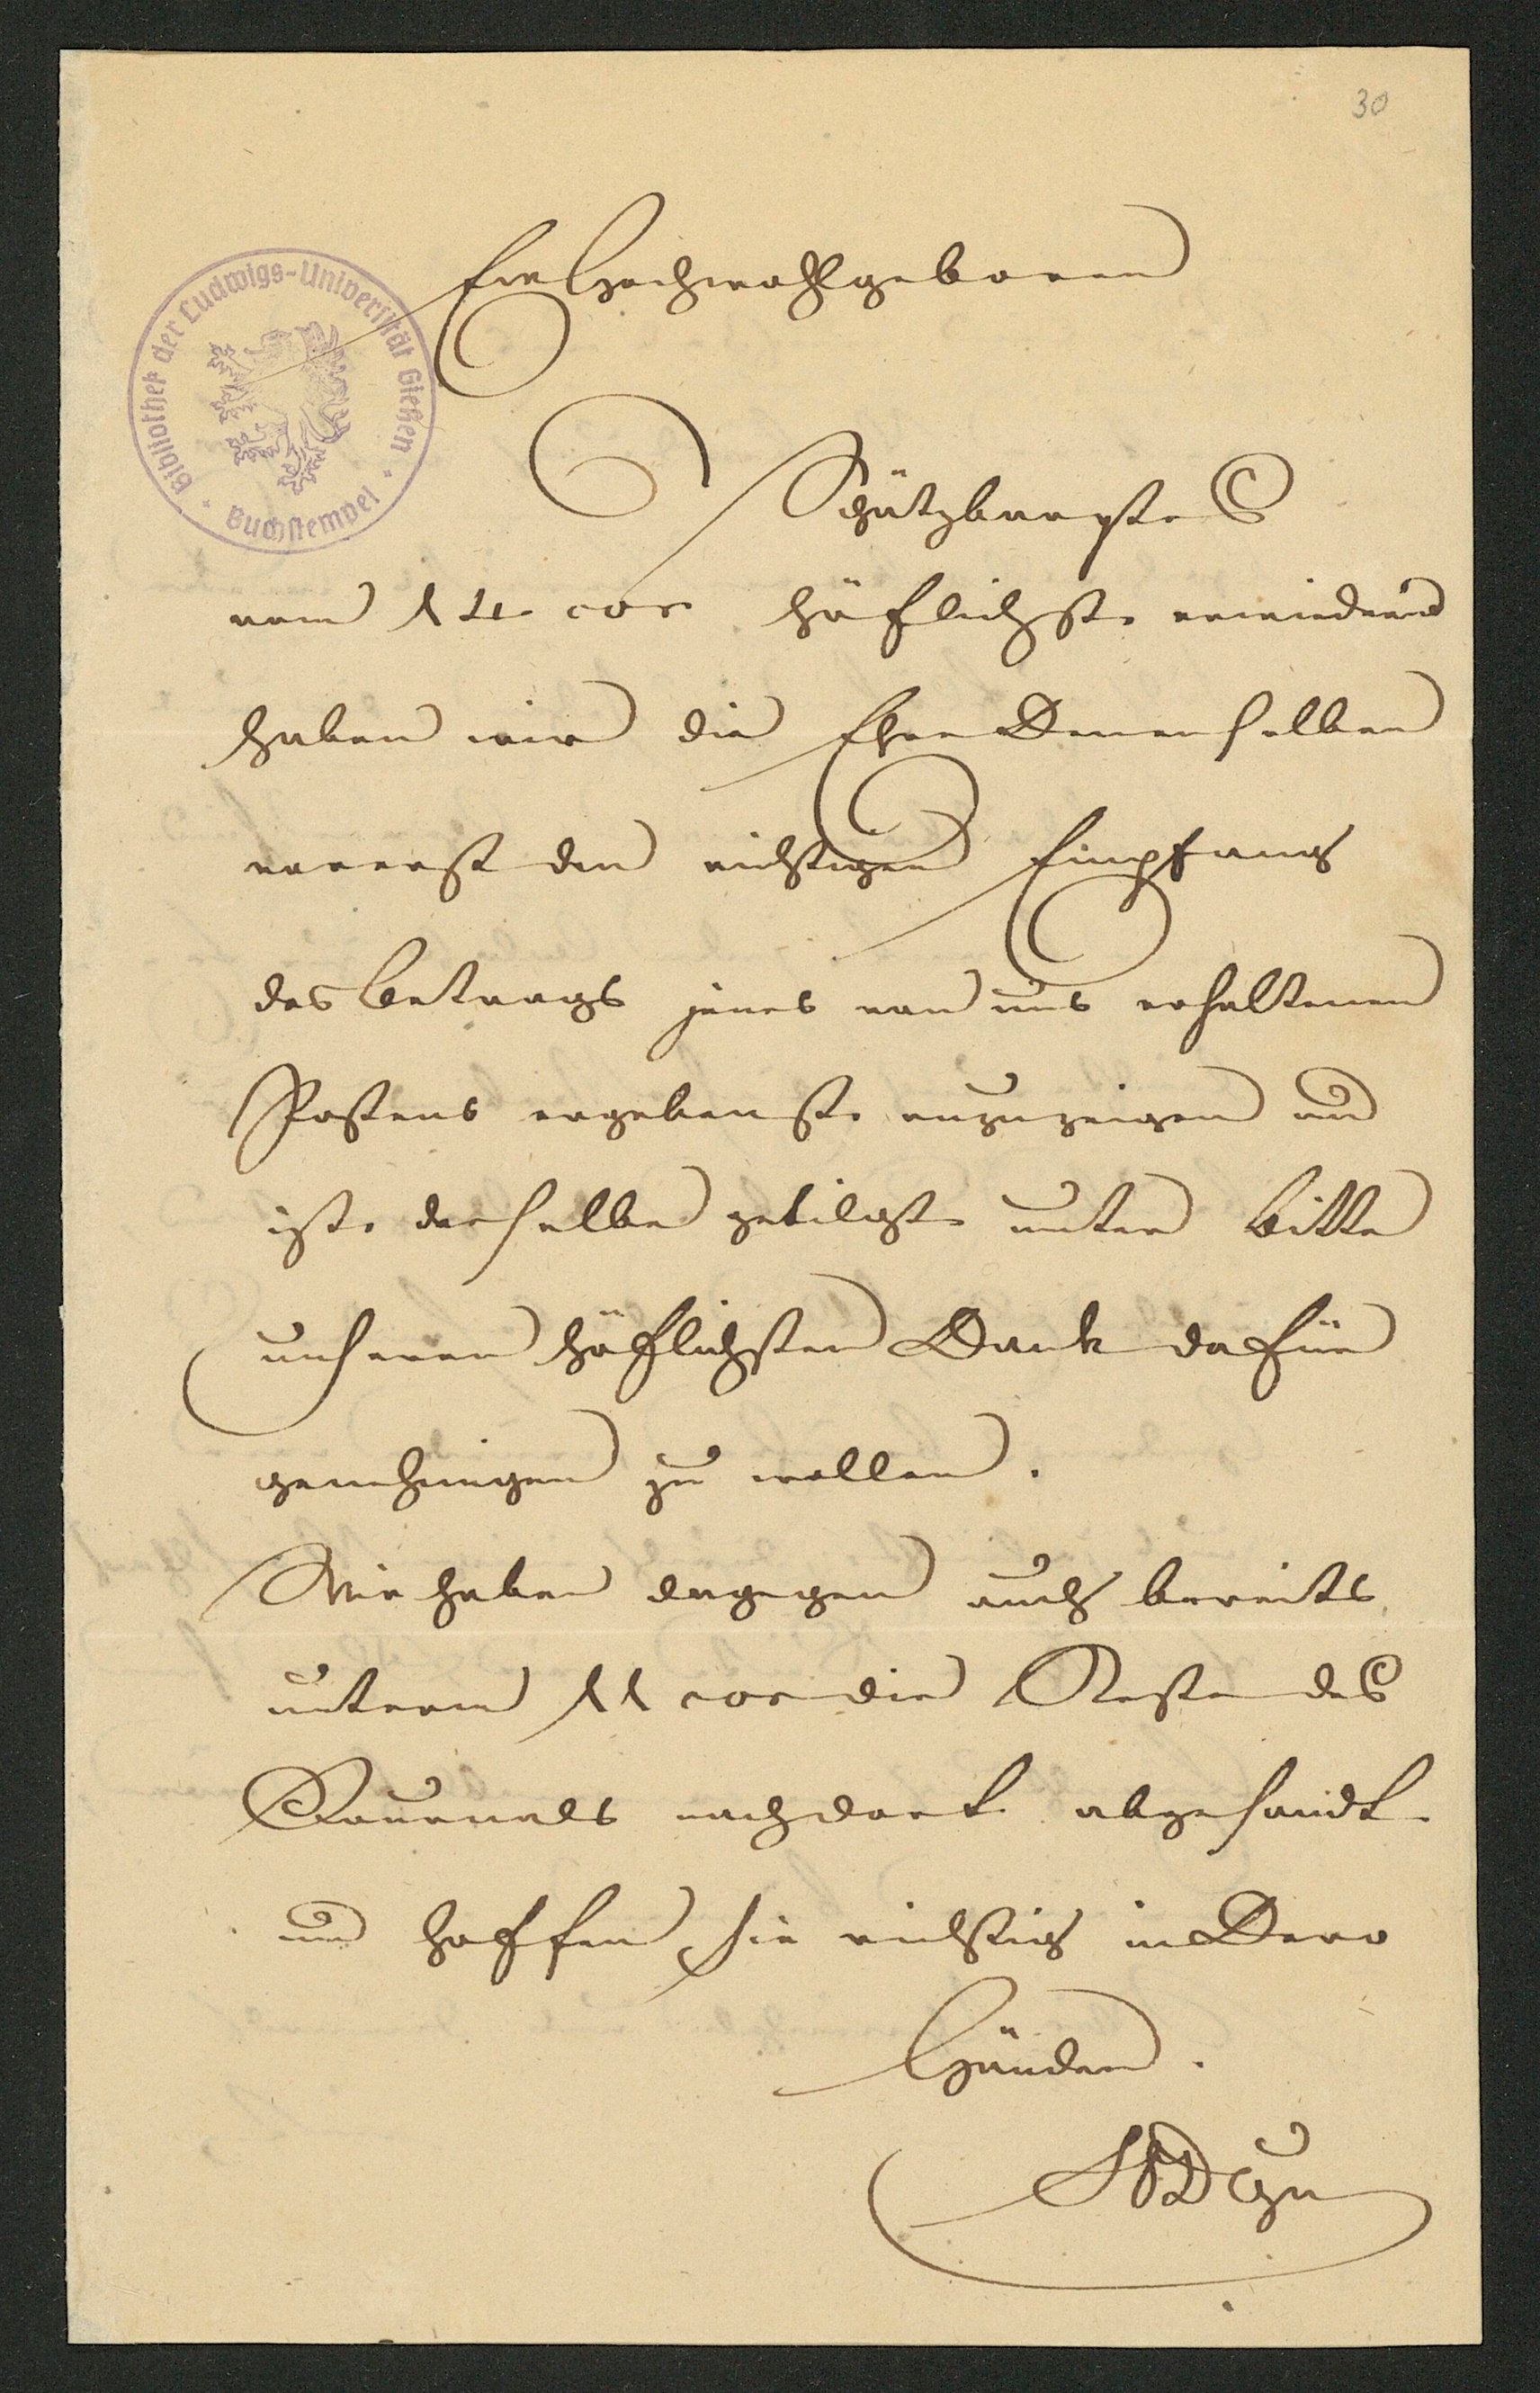 30
Bibliothek der Ludwigs-Universität Gießen
Buchstempel
Ew Hochwohlgeboren
Schätzbarstes
vom 14 cor höflichst erwiedernd
haben wir die Ehre Denenselben
vorerst den richtigen Empfang
des Betrags jenes von uns erhaltenen
Postens ergebenst anzuzeigen und
ist derselbe getilgt unter Bitte
unseren höflichsten Dank dafür
genehmigen zu wollen.
Wir haben dagegen auch bereits
unterm 11 cor die Reste des
Journals nach dort abgesandt
und hoffen sie richtig in Dero
Händen.